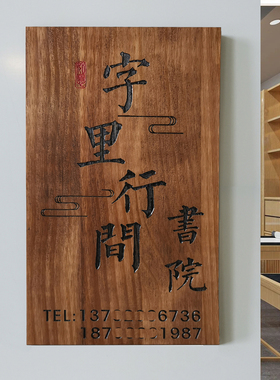 字里行間
書院
TEL:137 6736
187 1987